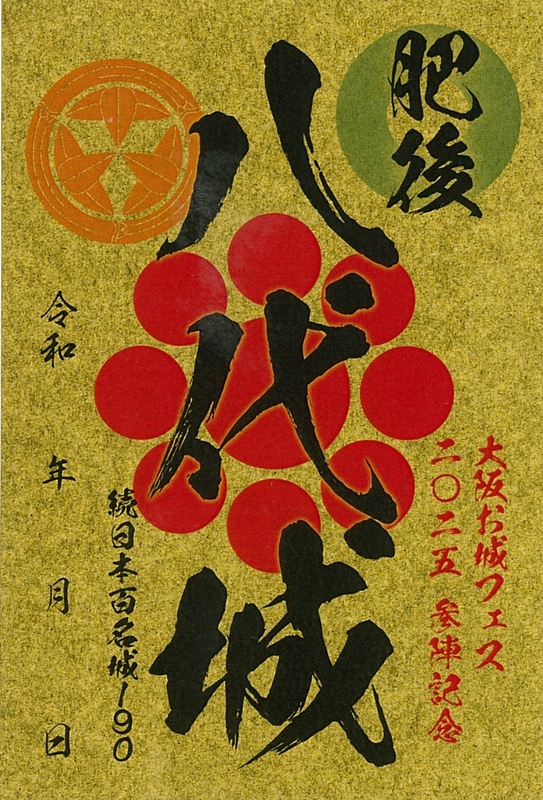 肥後
八代城
大阪お城フェス
二〇二五 参陣記念
続日本百名城190
令和 年 月 日